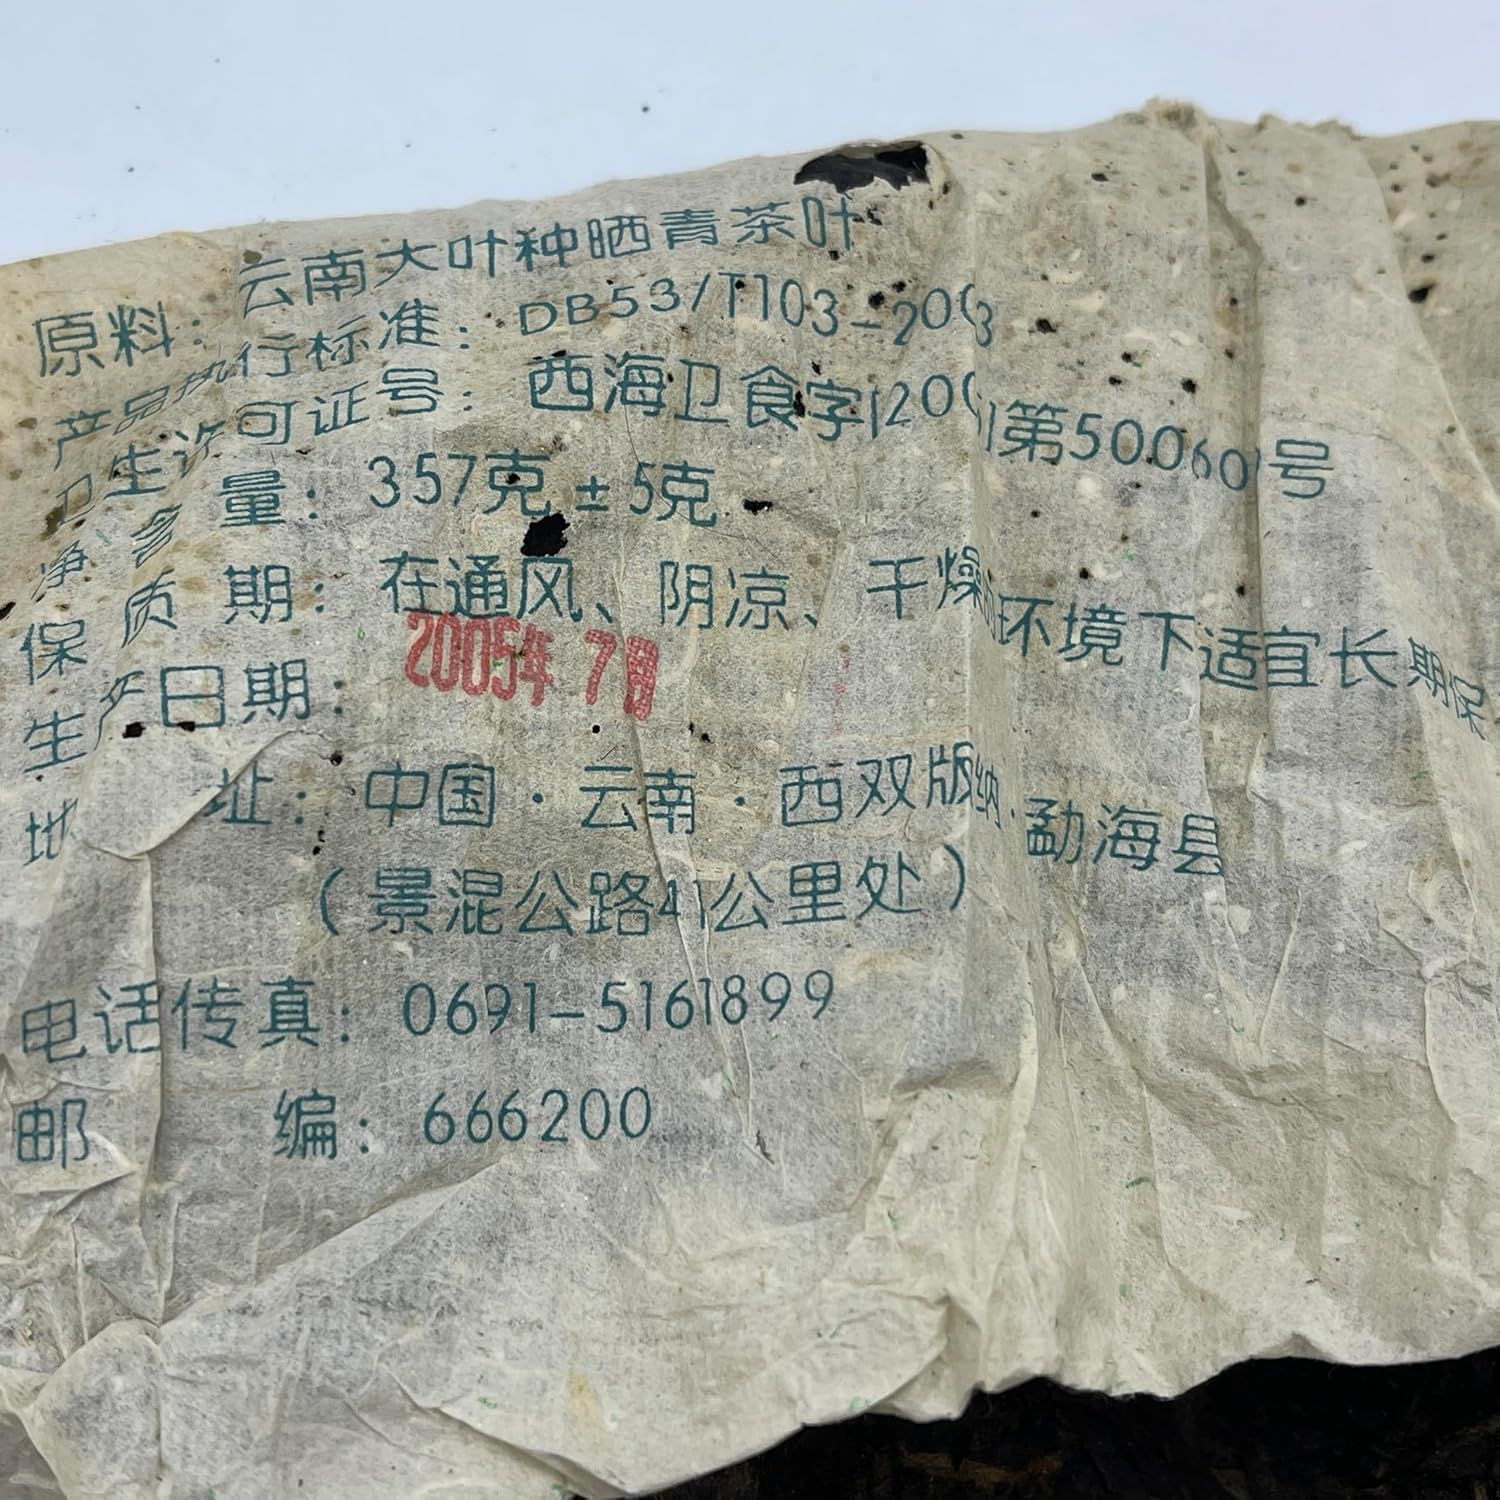 原料：云南大叶种晒青茶叶
产品执行标准：DB53/T103-2003
卫生许可证号：西海卫食字 第500601号
净含量：357克±5克
保质期：在通风、阴凉、干燥的环境下适宜长期保
生产日期：2005年 7月
地址：中国·云南·西双版纳·勐海县
（景混公路41公里处）
电话传真：0691-5161899
邮编：666200